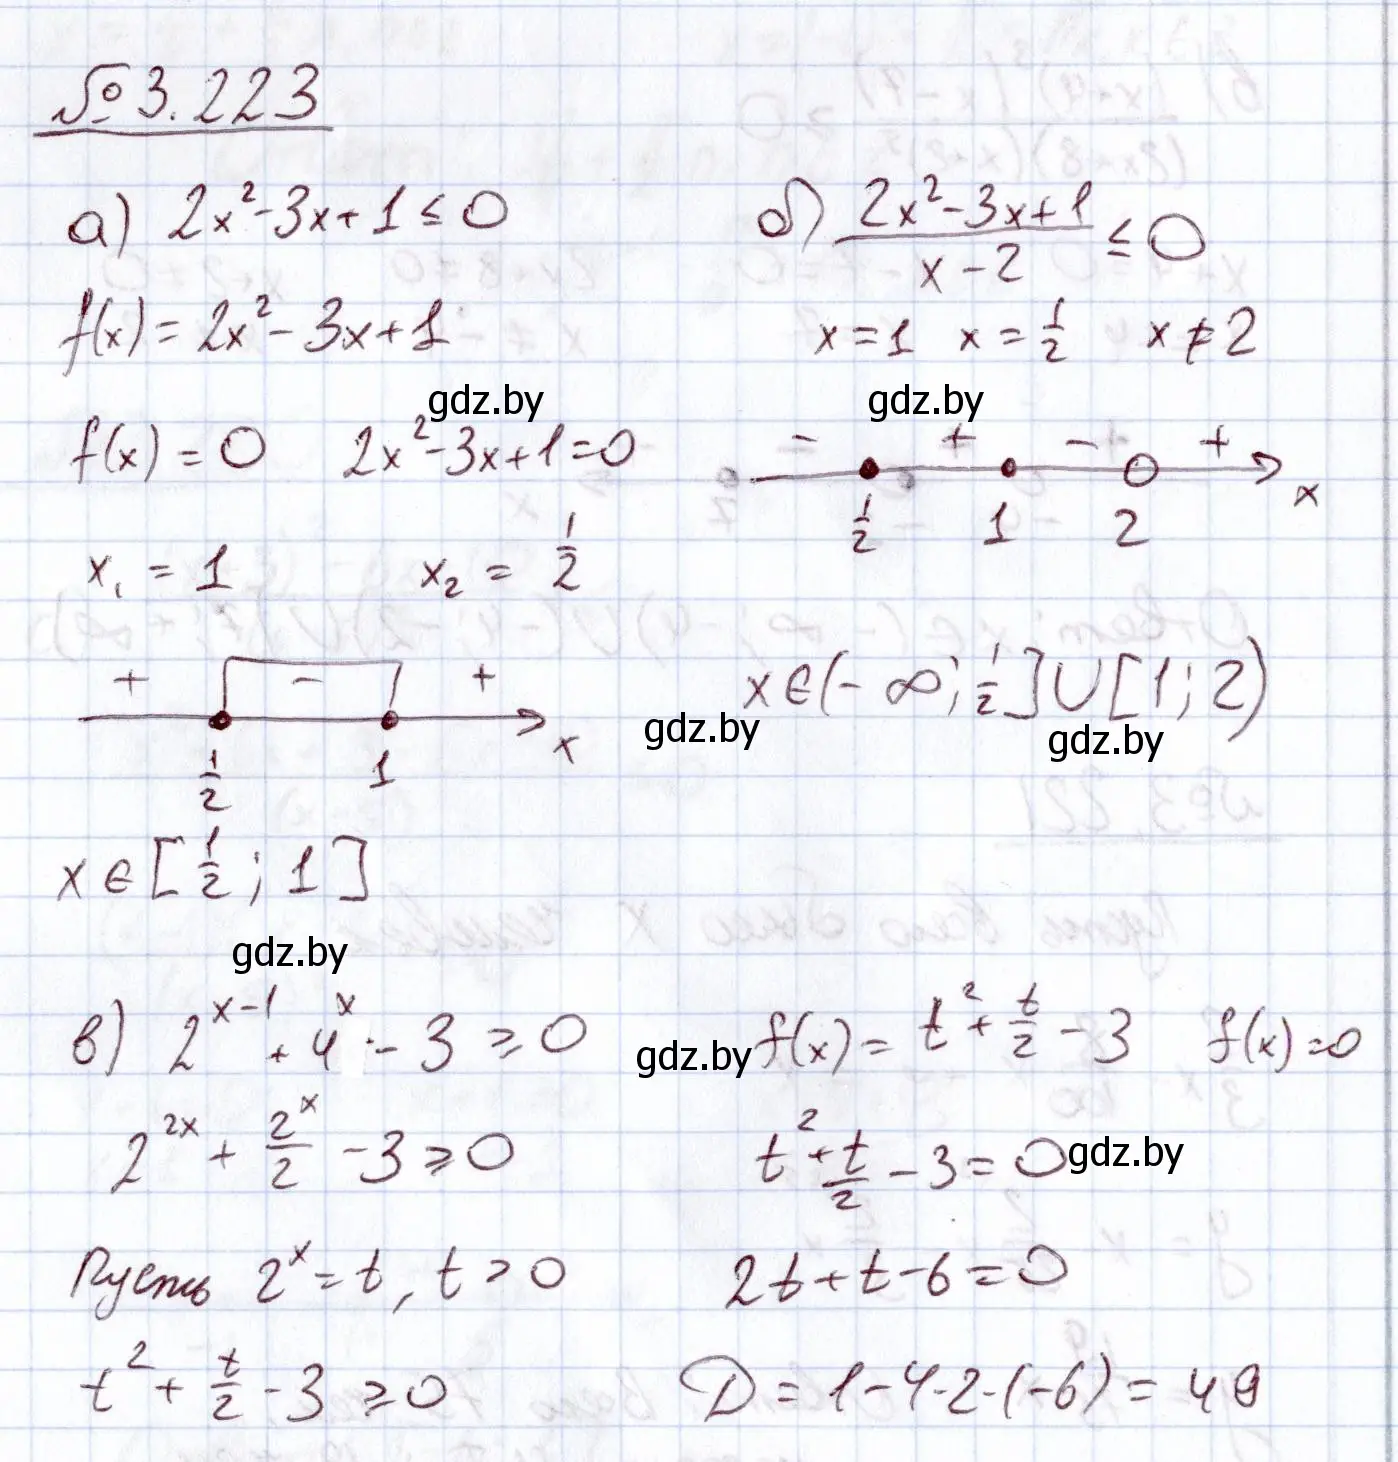 № 3.223
а) 2x² - 3x + 1 ≤ 0
f(x) = 2x² - 3x + 1
gdz.by
f(x) = 0 2x² - 3x + 1 = 0
x₁ = 1 x₂ = 1/2
+ - +
1/2 1 x
x ∈ [1/2; 1]
gdz.by
б) (2x² - 3x + 1)/(x - 2) ≤ 0
x = 1 x = 1/2 x ≠ 2
gdz.by
- + - +
1/2 1 2 x
x ∈ (-∞; 1/2] ∪ [1; 2)
gdz.by
gdz.by
в) 2^(x-1) + 4^x - 3 ≥ 0
2^(2x) + 2^x/2 - 3 ≥ 0
Пусть 2^x = t, t > 0
t² + t/2 - 3 ≥ 0
gdz.by
f(x) = t² + t/2 - 3 f(x) = 0
t² + t/2 - 3 = 0
gdz.by
2t + t - 6 = 0
D = 1 - 4·2·(-6) = 49